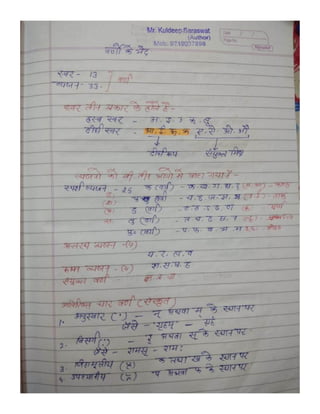 Mr. Kuldeep Saraswat
(Author)
Mob: 9719037898
वर्णों के भेद
स्वर - 13
व्यंजन - 33
वर्ण
स्वर तीन प्रकार के होते हैं -
ह्रस्व स्वर - अ इ उ ऋ लृ
दीर्घ स्वर - आ ई ऊ ॠ ए ऐ ओ औ
दीर्घ रूप संयुक्त मिश्र
व्यंजनों को भी तीन भागों में बाँटा गया है -
स्पर्श व्यंजन - 25 क (वर्ग) - क ख ग घ ङ
(वर्ग) - च छ ज झ ञ
टु (वर्ग) - ट ठ ड ढ ण
तु (वर्ग) - त थ द ध न
पु (वर्ग) - प फ ब भ म
अन्तस्थ व्यंजन - (4)
य, र, ल, व
ऊष्म व्यंजन - (4) श ष स ह
संयुक्त वर्ण - क्ष त्र ज्ञ
अतिरिक्त चार वर्ण (संस्कृत)
1. अनुस्वार (ं) - न् अथवा म् के स्थान पर
जैसे - गृहम् - गृहं
2. विसर्ग (ः) - र् अथवा स् के स्थान पर
जैसे - रामस् - रामः
3. जिह्वामूलीय क अथवा ख के स्थान पर
4. उपध्मानीय प अथवा फ के स्थान पर